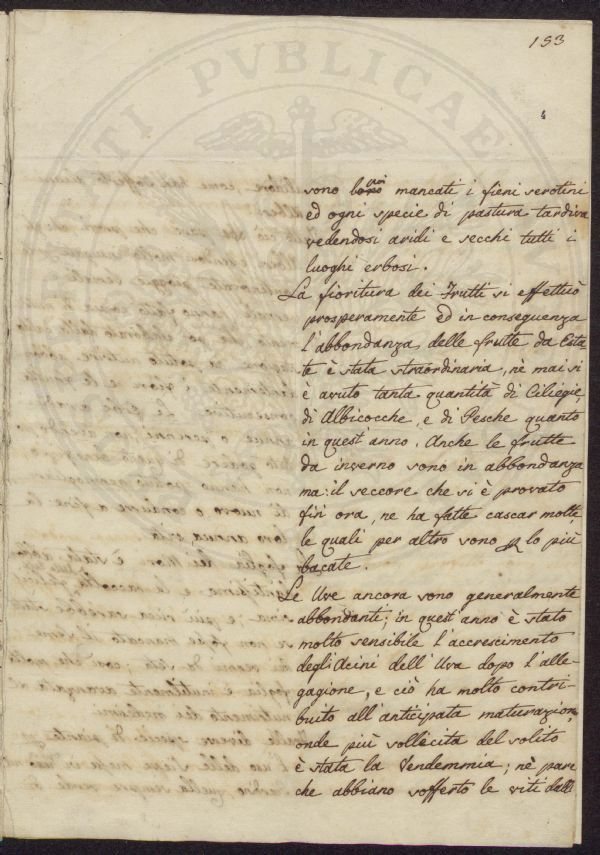 153
4
sono poi mancati i fieni serotini
ed ogni specie di pastura tardiva
vedendosi aridi e secchi tutti i
luoghi erbosi.
La fioritura dei Frutti si effettuò
prosperamente ed in conseguenza
l'abbondanza delle frutte da Esta-
te è stata straordinaria, nè mai si
è avuto tanta quantità di Ciliegie,
di Albicocche, e di Pesche quanto
in quest'anno. Anche le frutte
da inverno sono in abbondanza
ma il seccore che si è provato
fin' ora, ne ha fatte cascar molte,
le quali per altro sono p lo più
bacate.
Le Uve ancora sono generalmente
abbondanti; in quest'anno è stato
molto sensibile l'accrescimento
degli Acini dell'Uva dopo l'alle-
gagione, e ciò ha molto contri-
buito all'anticipata maturazione,
onde più sollecita del solito
è stata la Vendemmia; nè pare
che abbiano sofferto le viti dall